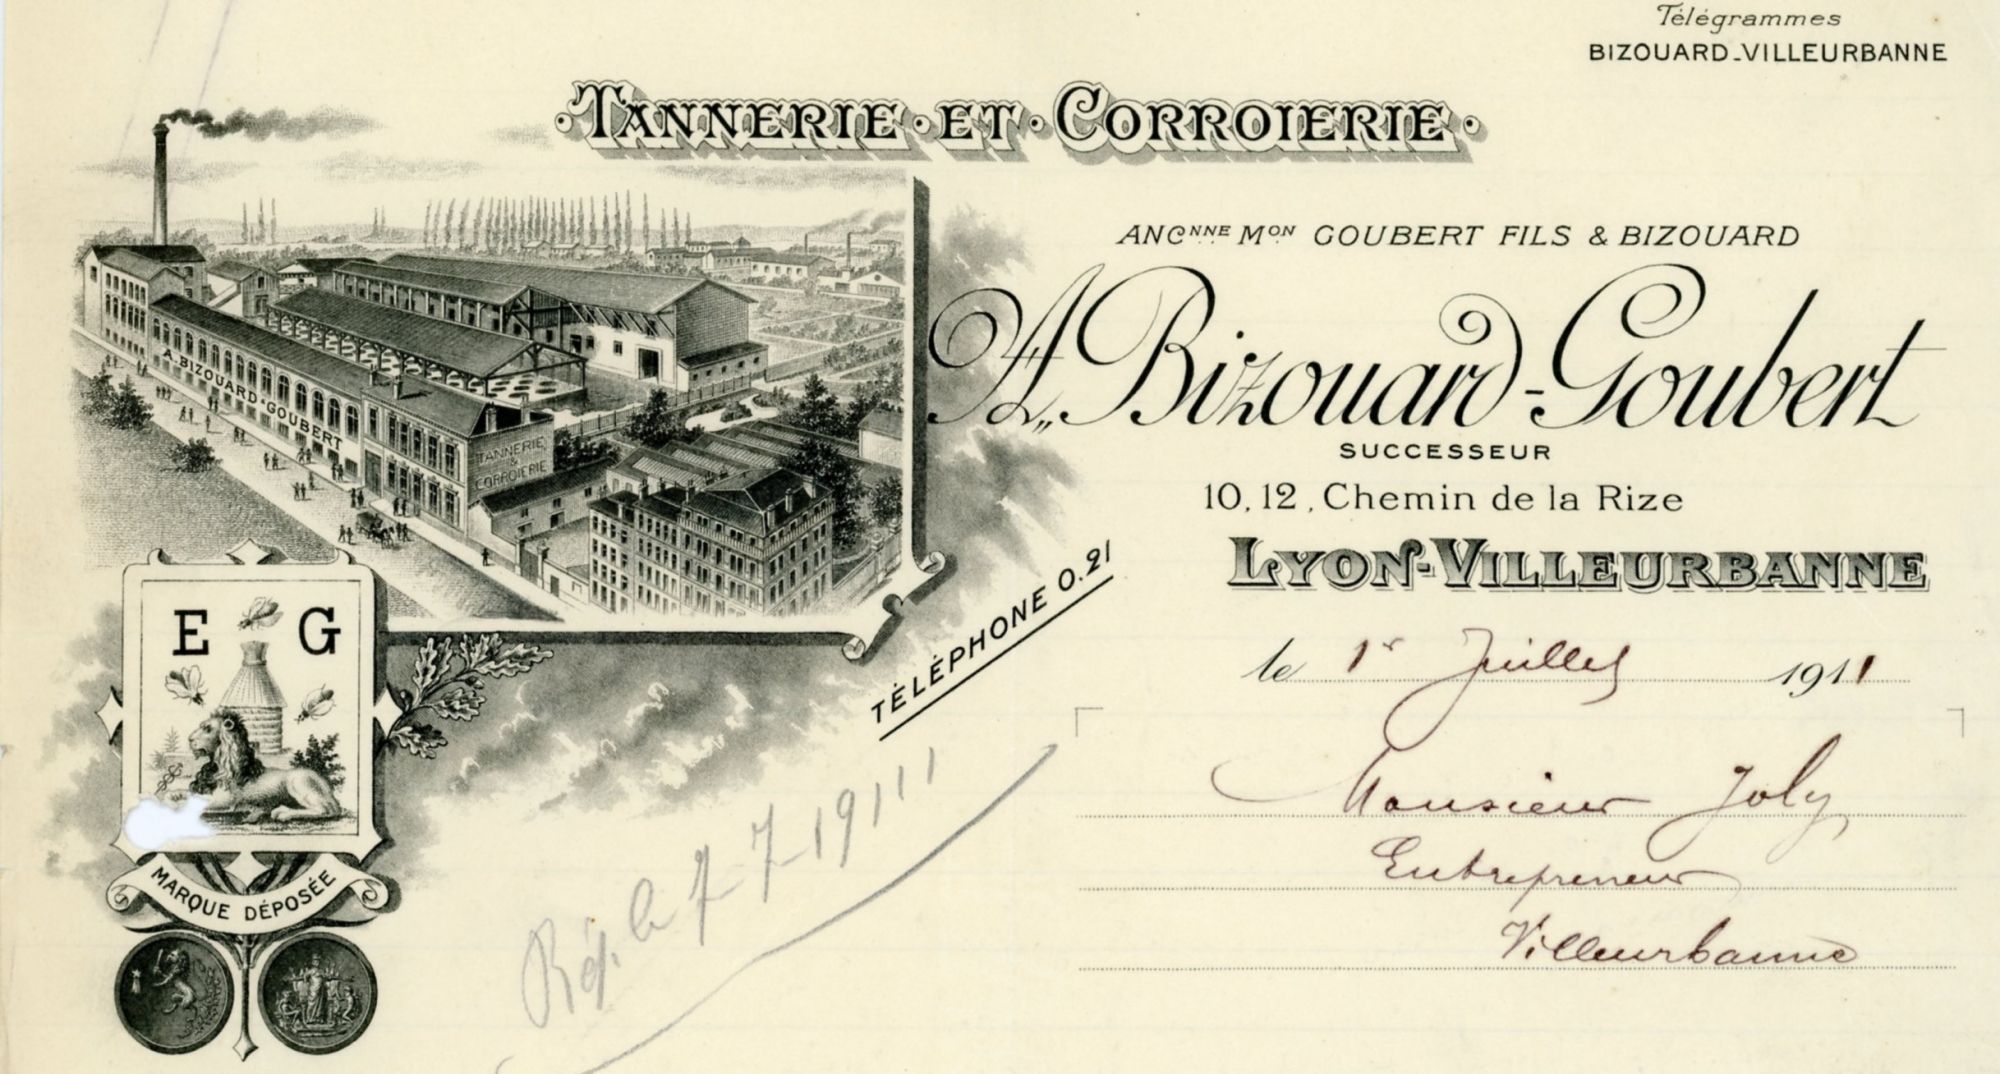 Télégrammes
BIZOUARD-VILLEURBANNE
TANNERIE ET CORROIERIE
ANCNNE MON GOUBERT FILS & BIZOUARD
A. Bizouard-Goubert
SUCCESSEUR
10, 12, Chemin de la Rize
LYON-VILLEURBANNE
A. BIZOUARD-GOUBERT
TANNERIE
&
CORROIERIE
TÉLÉPHONE 0.21
le 1r Juillet 1911
Monsieur Joly
Entrepreneur
Villeurbanne
E G
MARQUE DÉPOSÉE
Rép. le 7-7-1911